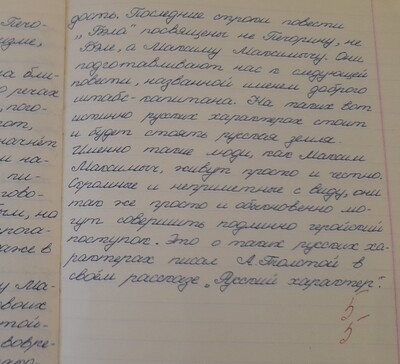 Пего-
дость. Последние строки повести
„Бэла" посвящены не Печорину, не
Бэле, а Максиму Максимычу. Они
подготавливают нас к следующей
повести, названной именем доброго
штабс-капитана. На таких вот
истинно русских характерах стоит
и будет стоять русская земля.
Именно такие люди, как Максим
Максимыч, живут просто и честно.
Скромные и неприметные с виду, они
так же просто и обыкновенно мо-
гут совершить подлинно геройский
поступок. Это о таких русских ха-
рактерах писал А. Толстой в
своём рассказе „Русский характер".
5
5